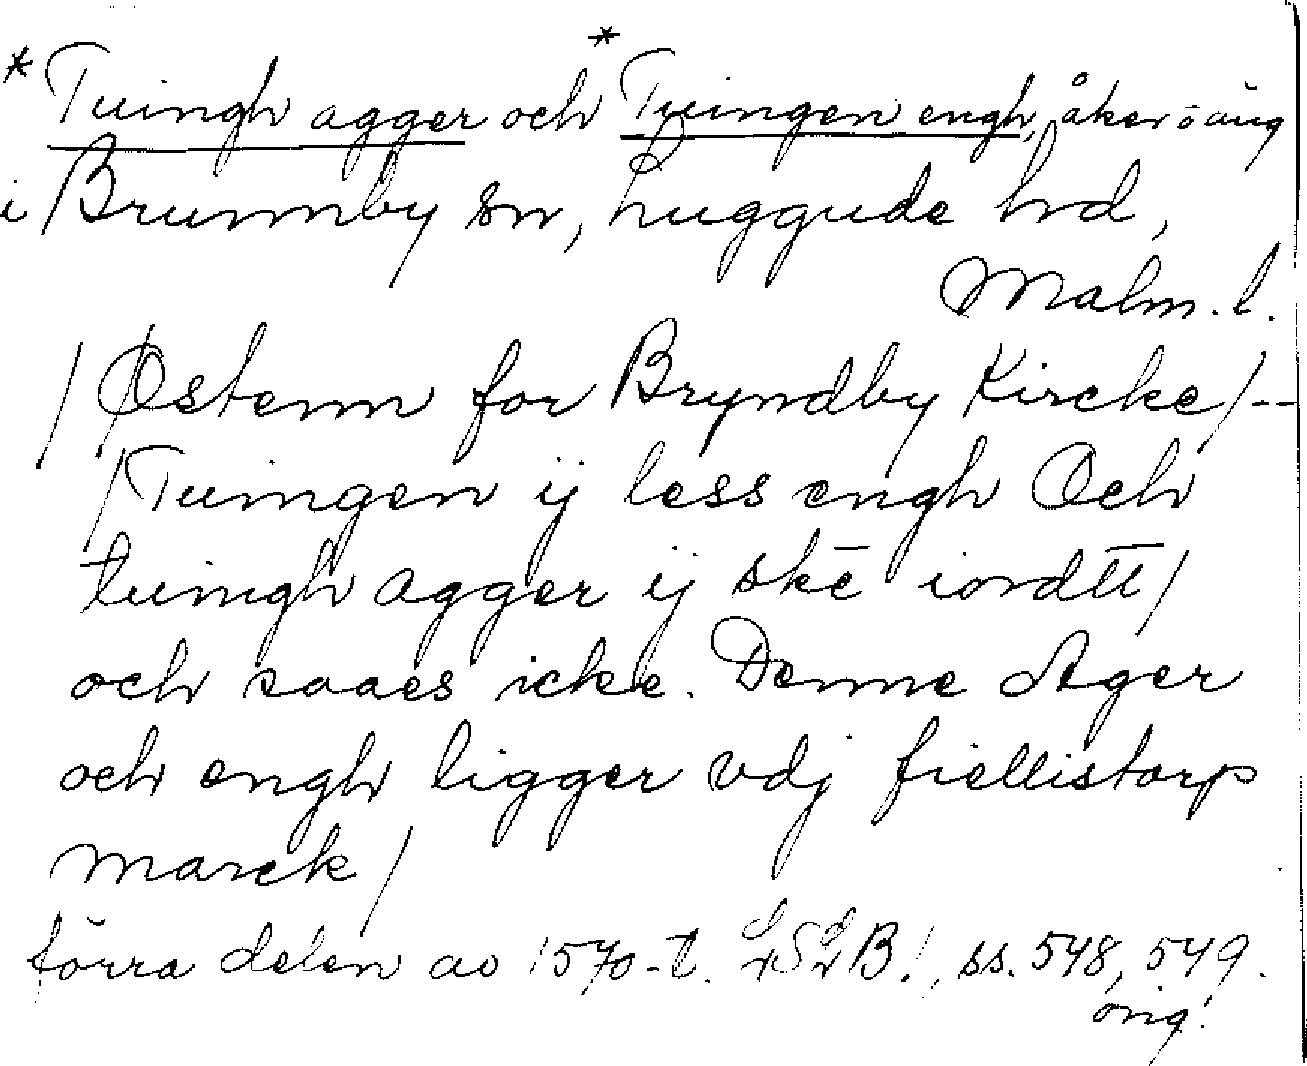 *Tuingh agger och *Tuingen engh, åker o äng
i Brunnby sn, Luggude hrd,
Malm. l.
/Østenn for Bryndby Kircke/--
/Tuingen ij less engh Och
tuingh agger ij skē iordtt/
och saaes icke. Denne Ager
och engh ligger vdj fiellistorp
marck/
förra delen av 1570-t. B!, ss. 548, 549.
orig.